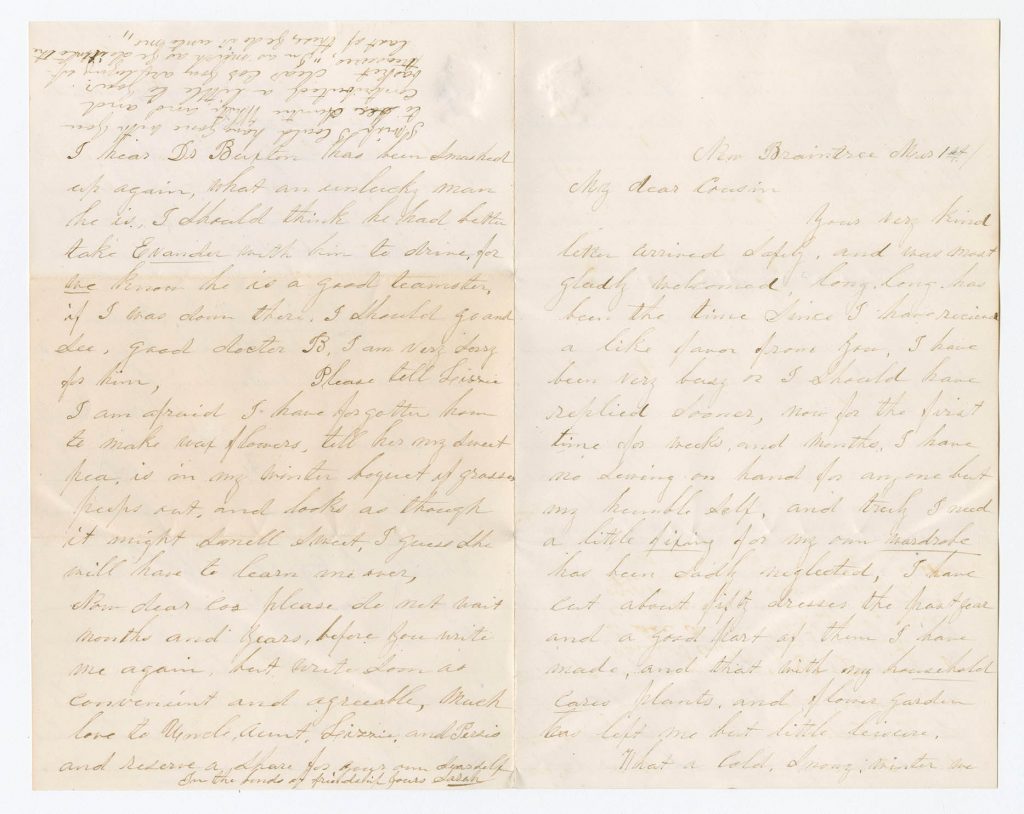 New Braintree Mar 1st/
My dear Cousin
Your very kind
letter arrived safely, and was most
gladly welcomed, long, long has
been the time since I have recieved
a like favor from you, I have
been very busy or I should have
replied sooner, now for the first
time for weeks, and months, I have
no sewing on hand for any one but
my humble self, and truly I need
a little fixing for my own wardrobe
has been sadly neglected, I have
cut about fifty dresses the past year
and a good part of them I have
made, and that with my household
cares plants, and flower garden
has left me but little leisure.
What a cold, snowy, winter we
I hear Dr Buxton has been smashed
up again, what an unlucky man
he is, I should think he had better
take Evander with him to drive, for
we know he is a good teamster,
if I was down there, I should go and
see, good doctor B, I am very sorry
for him, Please tell Lizzie
I am afraid I have forgotten how
to make wax flowers, tell her my sweet
pea, is in my winter boquet of grasses
peeps out, and looks as though
it might smell sweet, I guess she
will have to learn me over,
Now dear coz please do not wait
months and years, before you write
me again, but write soon as
convenient and agreeable, Much
love to Uncle, Aunt, Lizzie, and Persis
and reserve a share for your own dear self
In the bonds of friendship yours Sarah
I wish I could have gone with you
to see Auntie and and
contributed a little to your
basket dear coz you are laying up
treasure, "In as much as ye do it unto the
least of these, ye do it unto me"